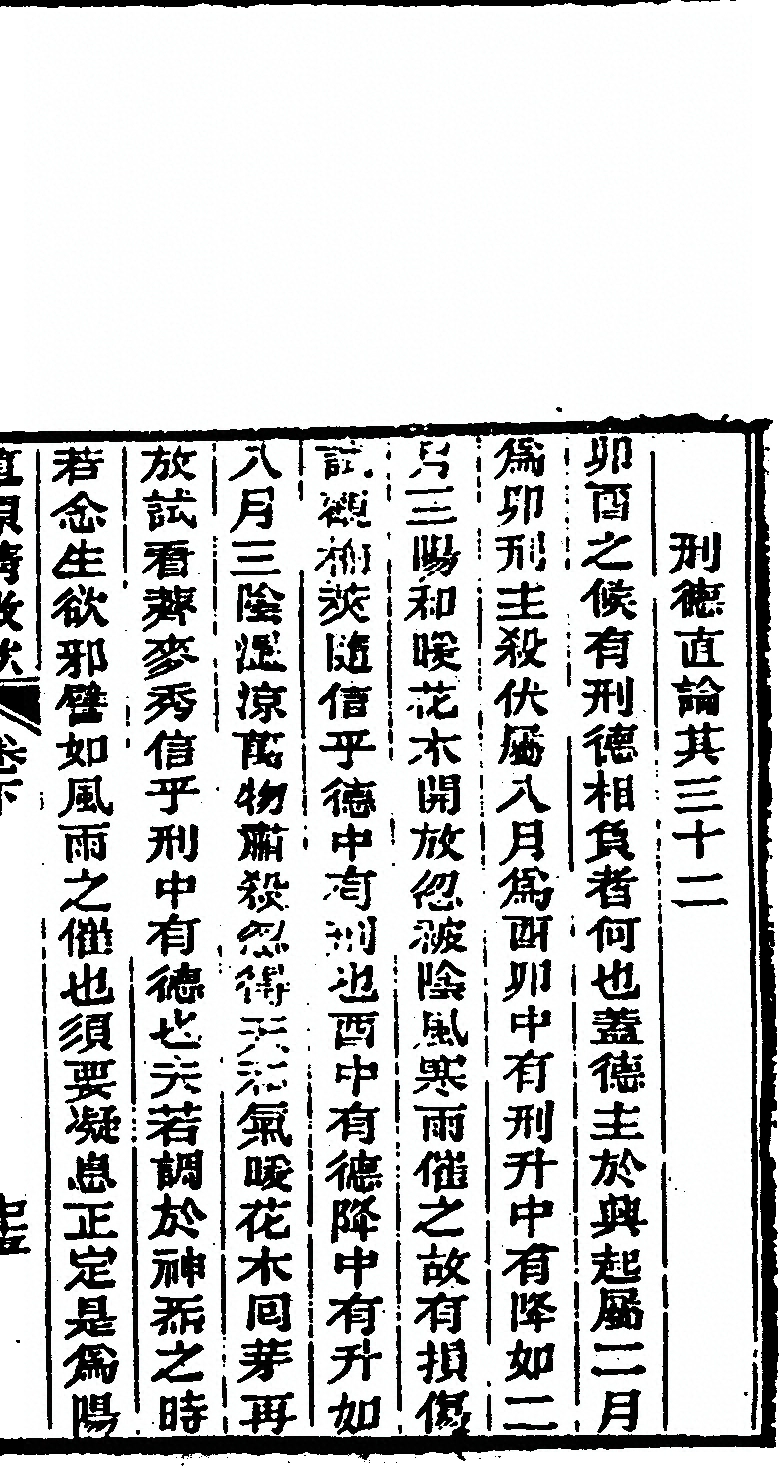 刑德直論其三十二
卯酉之候有刑德相負者何也蓋德主於興起屬二月
爲卯刑主殺伏屬八月爲酉卯中有刑升中有降如二
月三陽和暖花木開放忽被陰風寒雨催之故有損傷
試觀榆莢隨信乎德中有刑也酉中有德降中有升如
八月三陰溫涼萬物肅殺忽得天氣暖花木回芽再
放試看薺麥秀信乎刑中有德也夫若調於神炁之時
若念生欲邪譬如風雨之催也須要凝息正定是爲陽
卷下